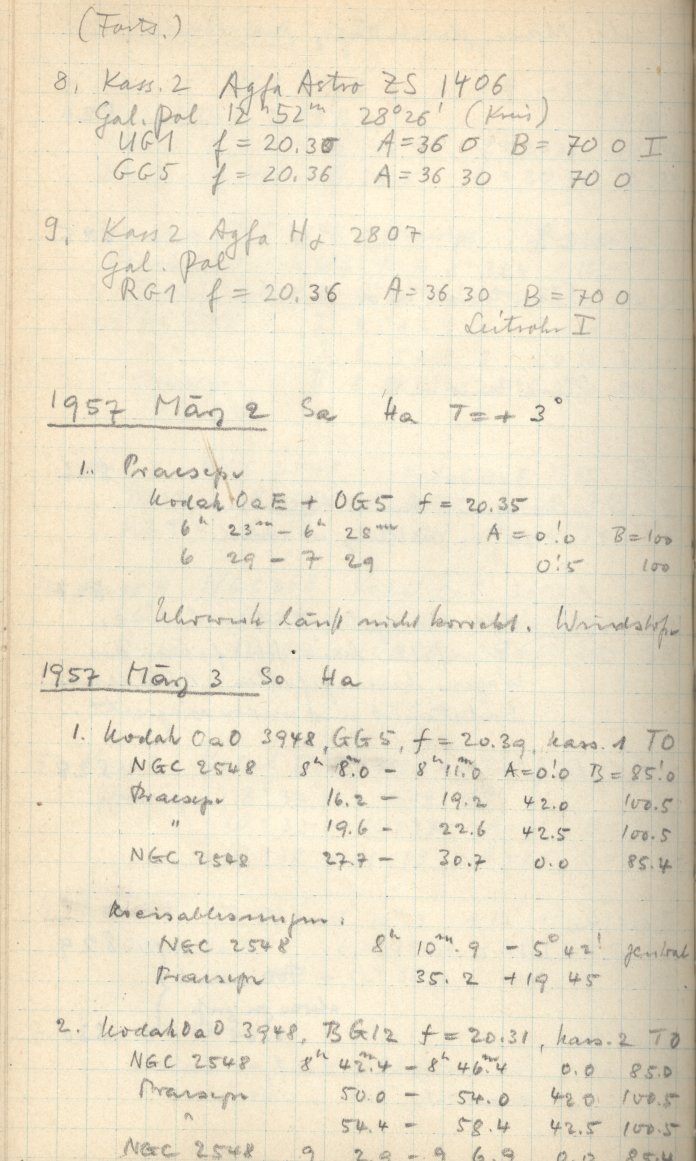 (Forts.)
8. Kass. 2 Agfa Astro ZS 1406
Gal. Pol 12ʰ 52ᵐ 28° 26' (Kreis)
UG1 f = 20.30 A = 36 0 B = 70 0 I
GG5 f = 20.36 A = 36 30 70 0
9. Kass 2 Agfa Hα 2807
Gal. Pol
RG1 f = 20.36 A = 36 30 B = 70 0
Leitrohr I
1957 März 2 Sa Ha T = + 3°
1. Praesepe
Kodak OaE + OG5 f = 20.35
6ʰ 23ᵐ – 6ʰ 28ᵐ A = 0!0 B = 100
6 29 – 7 29 0!5 100
Uhrwerk läuft nicht korrekt. Windstöße
1957 März 3 So Ha
1. Kodak OaO 3948, GG5, f = 20.39, Kass. 1 TO
NGC 2548 8ʰ 8ᵐ.0 – 8ʰ 11ᵐ.0 A = 0!0 B = 85!0
Praesepe 16.2 – 19.2 42.0 100.5
" 19.6 – 22.6 42.5 100.5
NGC 2548 27.7 – 30.7 0.0 85.4
Kreisablesungen:
NGC 2548 8ʰ 10ᵐ.9 – 5° 42' zentral
Praesepe 35.2 + 19 45
2. Kodak OaO 3948, BG12 f = 20.31, Kass. 2 TO
NGC 2548 8ʰ 42ᵐ.4 – 8ʰ 46ᵐ.4 0.0 85.0
Praesepe 50.0 – 54.0 42.0 100.5
" 54.4 – 58.4 42.5 100.5
NGC 2548 9 2.9 – 9 6.9 85.4